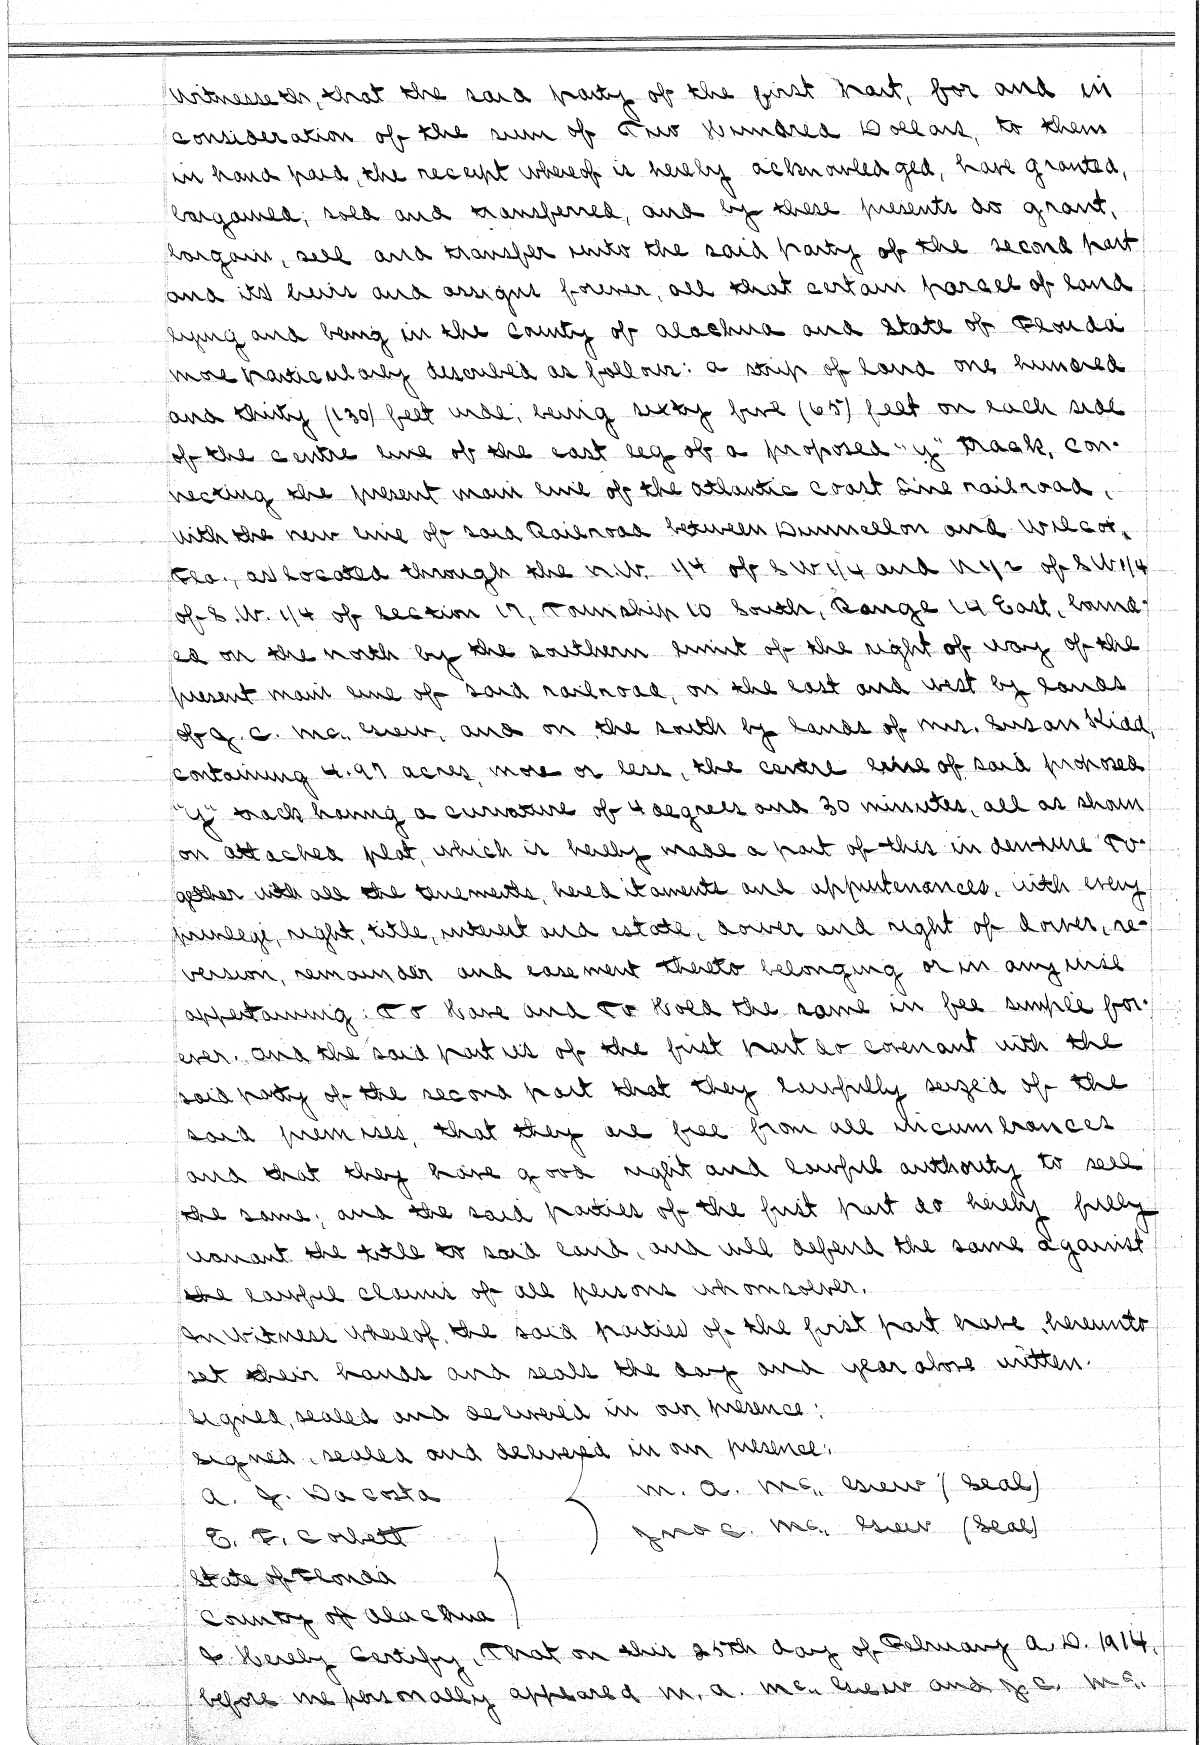 Witnesseth, that the said party of the first Part, for and in
consideration of the sum of Two Hundred Dollars, to them
in hand paid, the receipt whereof is hereby acknowledged, have granted,
bargained, sold and transferred, and by these presents do grant,
bargain, sell and transfer unto the said Party of the second part
and its heirs and assigns forever, all that certain parcel of land
lying and being in the County of Alachua and State of Florida
more particularly described as follows: a strip of land one hundred
and thirty (130) feet wide, being sixty five (65) feet on each side
of the centre line of the east leg of a proposed "y" track, con-
necting the present main line of the Atlantic Coast Line railroad,
with the new line of said Railroad between Dunnellon and Wilcox,
Fla., as located through the N.W. 1/4 of SW 1/4 and N 1/2 of SW 1/4
of S.W. 1/4 of Section 17, Township 10 South, Range 14 East, bound-
ed on the north by the southern limit of the right of way of the
present main line of said railroad, on the east and west by lands
of J. C. Mc., and on the south by lands of Mrs. Susan Kidd,
containing 4.97 acres, more or less, the centre line of said proposed
"y" track having a curvature of 4 degrees and 30 minutes, all as shown
on attached plat, which is hereby made a part of this indenture To-
gether with all the tenements, hereditaments and appurtenances, with every
privilege, right, title, interest and estate, dower and right of dower, re-
version, remainder and easement thereto belonging or in any wise
appertaining: To Have and To Hold the same in fee simple for-
ever. And the said parties of the first part do covenant with the
said party of the second part that they lawfully seized of the
said premises, that they are free from all incumbrances
and that they have good right and lawful authority to sell
the same; and the said parties of the first part do hereby fully
warrant the title to said land, and will defend the same against
the lawful claims of all persons whomsoever.
In Witness whereof, the said parties of the first part have, hereunto
set their hands and seals the day and year above written.
Signed, sealed and delivered in our presence:
Signed, sealed and delivered in our presence:
A. J. DaCosta M. A. Mc. (Seal)
E. F. Corbett Jno C. Mc. (Seal)
State of Florida
County of Alachua
I Hereby Certify, That on this 25th day of February A.D. 1914,
before me personally appeared M. A. Mc. and J. C. Mc.